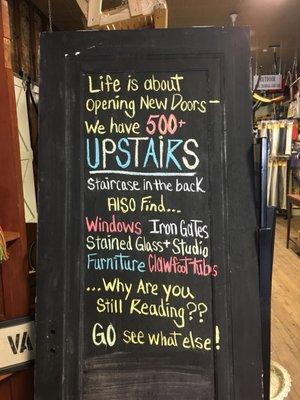 Life is about
opening New Doors -
We have 500+
UPSTAIRS
Staircase in the back
Also Find...
Windows Iron Gates
Stained Glass + Studio
Furniture Clawfoot tubs
...Why Are you
Still Reading??
GO see what else!
OUTDOOR
VA